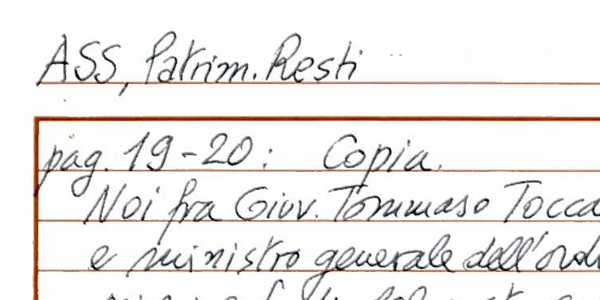 ASS, Patrim. Resti
pag. 19-20: Copia.
Noi fra Giov. Tommaso Tocca
e ministro generale dell'ord